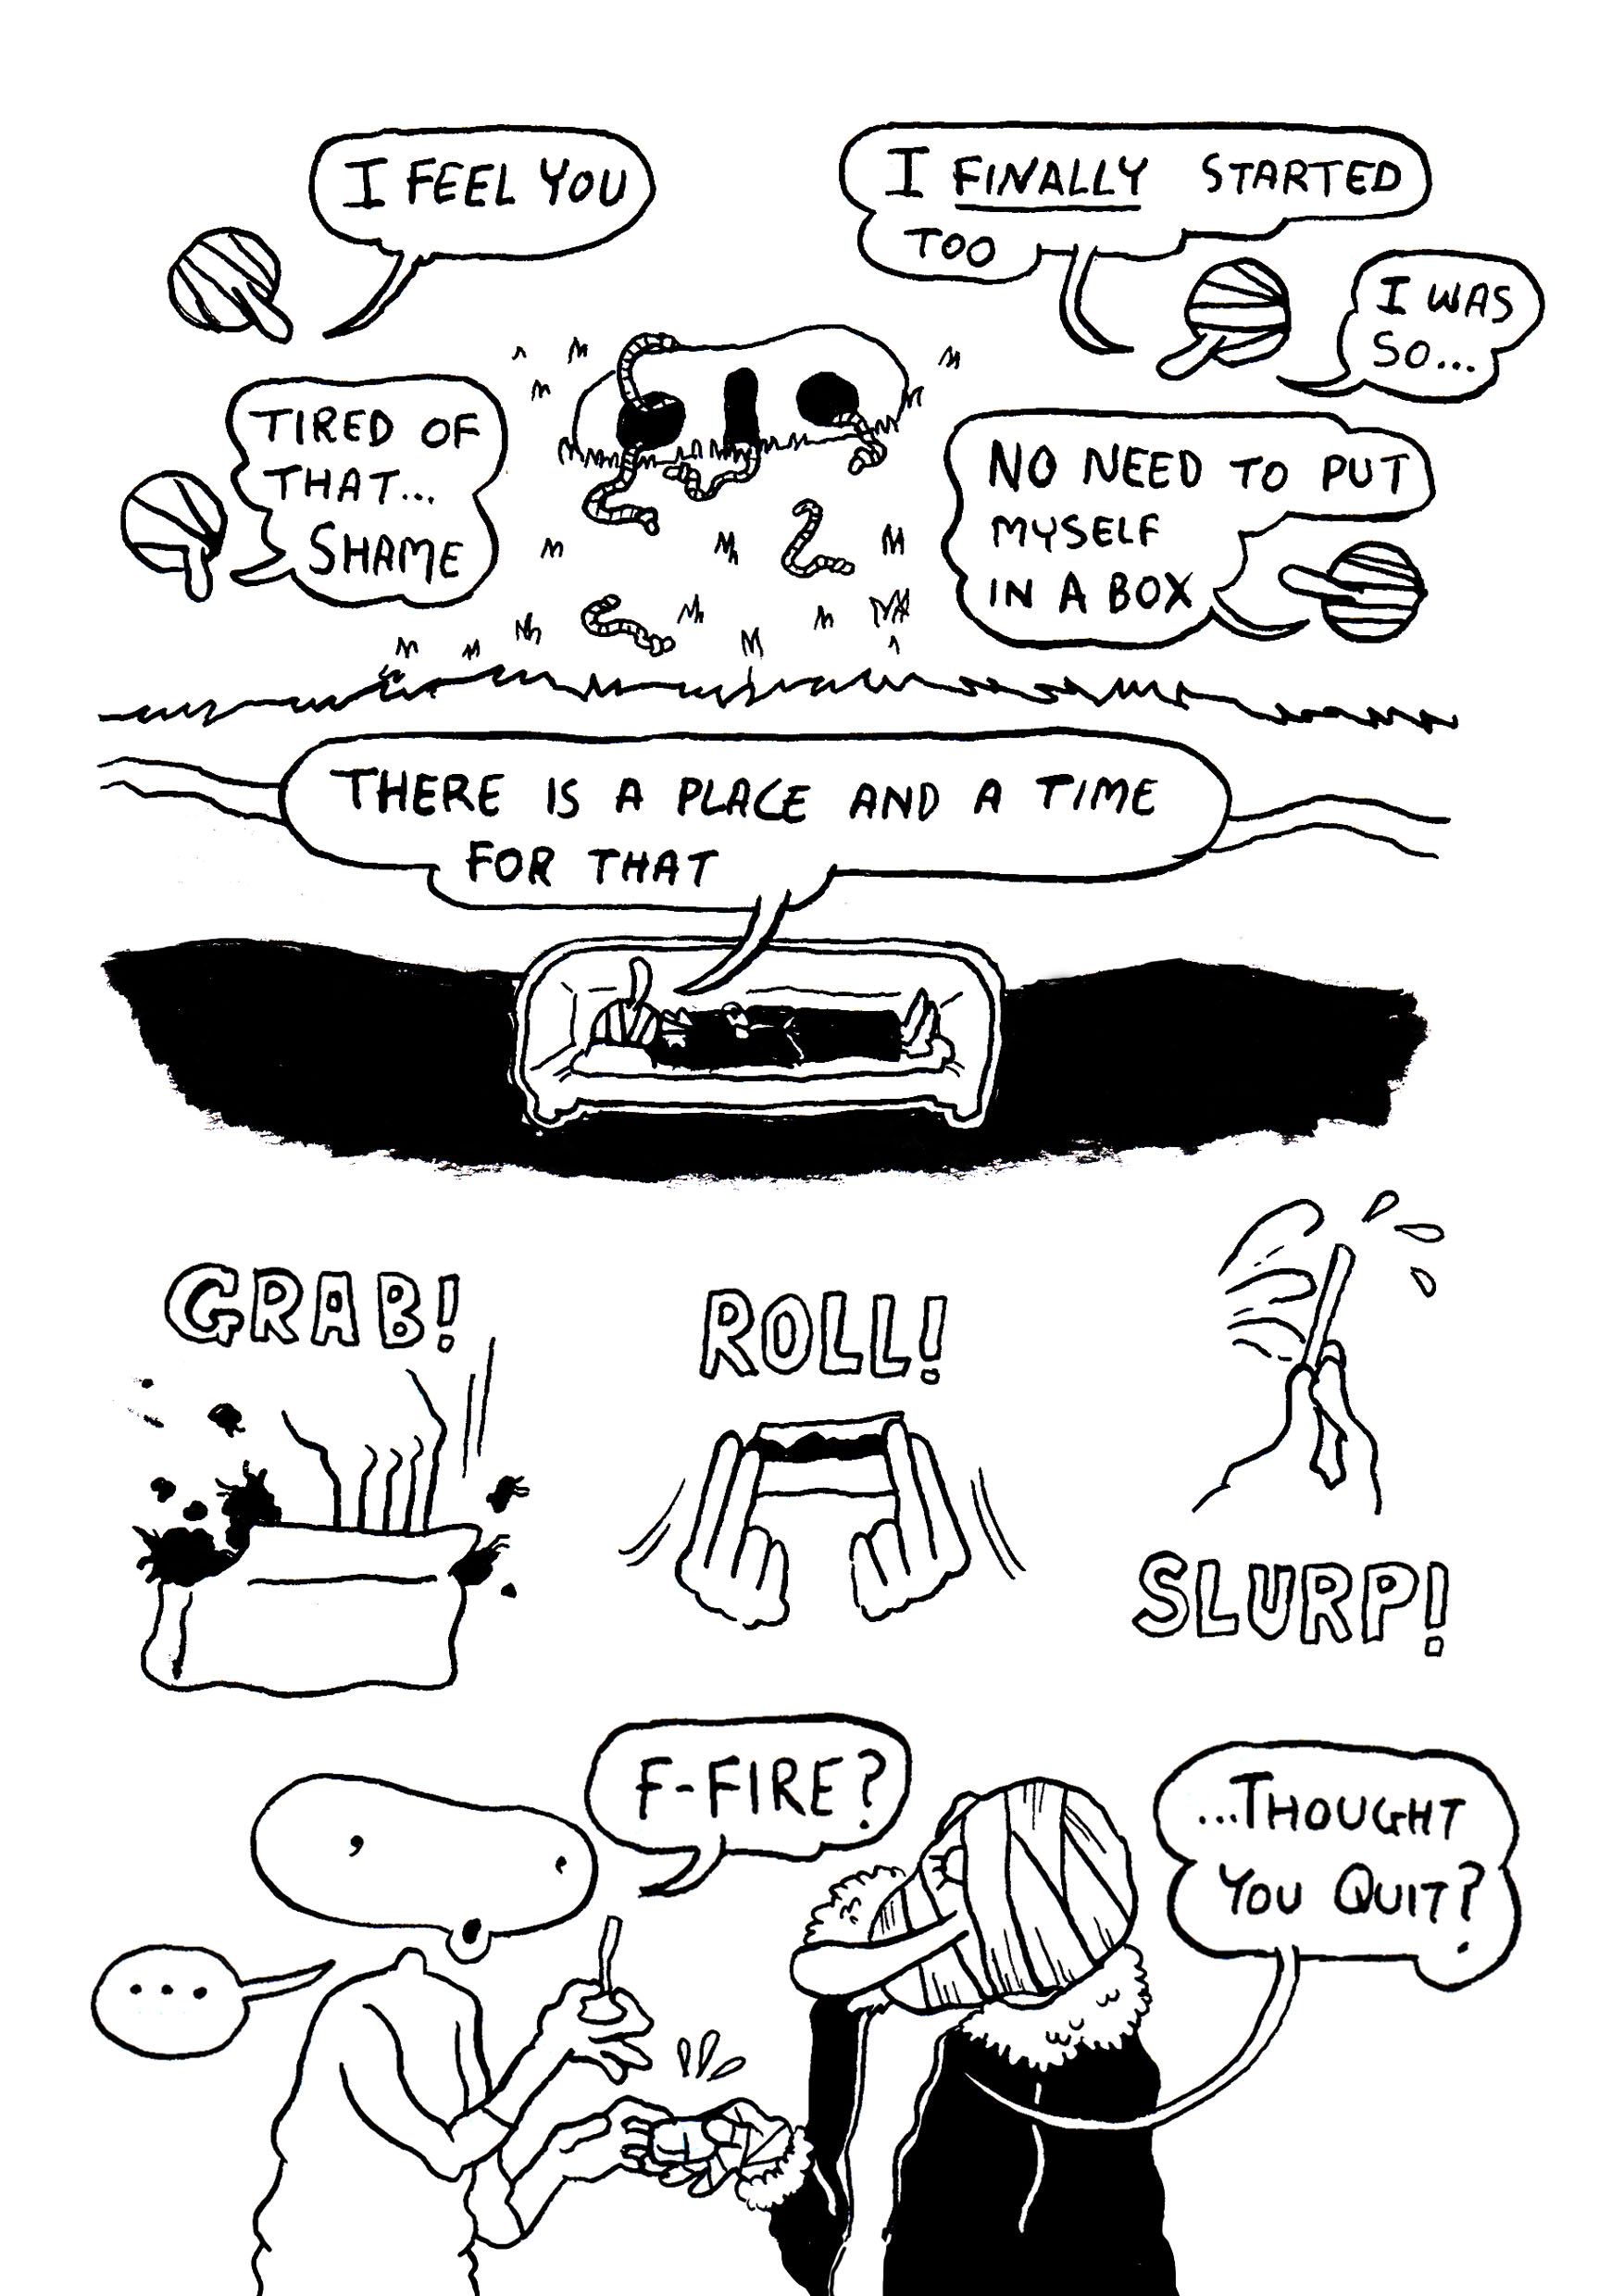 I FEEL YOU
I FINALLY STARTED
TOO
I WAS
SO...
TIRED OF
THAT...
SHAME
NO NEED TO PUT
MYSELF
IN A BOX
THERE IS A PLACE AND A TIME
FOR THAT
GRAB!
ROLL!
SLURP!
F-FIRE?
...THOUGHT
YOU QUIT?
...